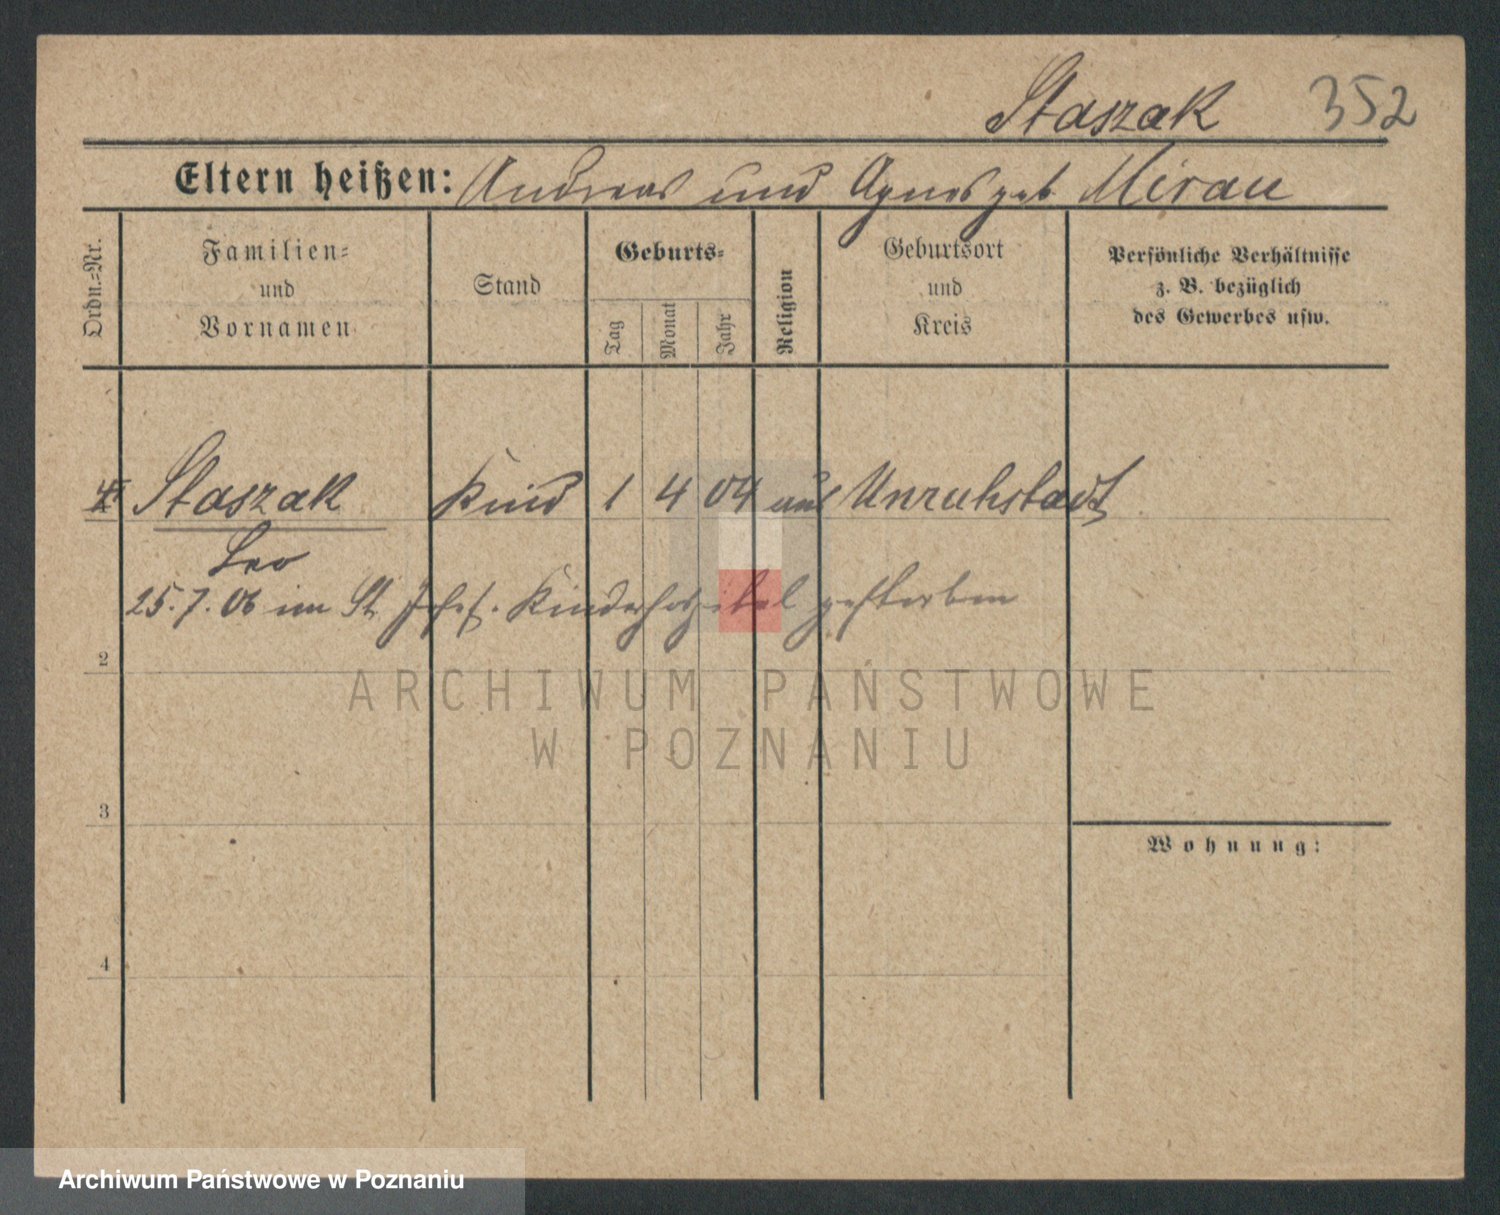 Staszak 352
Eltern heißen: Andreas und Agnes geb Mirau
Ordn.=Nr.
Familien=
und
Vornamen
Stand
Geburts=
Tag
Monat
Jahr
Religion
Geburtsort
und
Kreis
Persönliche Verhältnisse
z. B. bezüglich
des Gewerbes usw.
Staszak Kind 1 4 04 aus Unruhstadt
Leo
25.7.06 im St. Josef. Kinderhospital gestorben
2
ARCHIWUM PAŃSTWOWE
W POZNANIU
3
Wohnung:
4
Archiwum Państwowe w Poznaniu